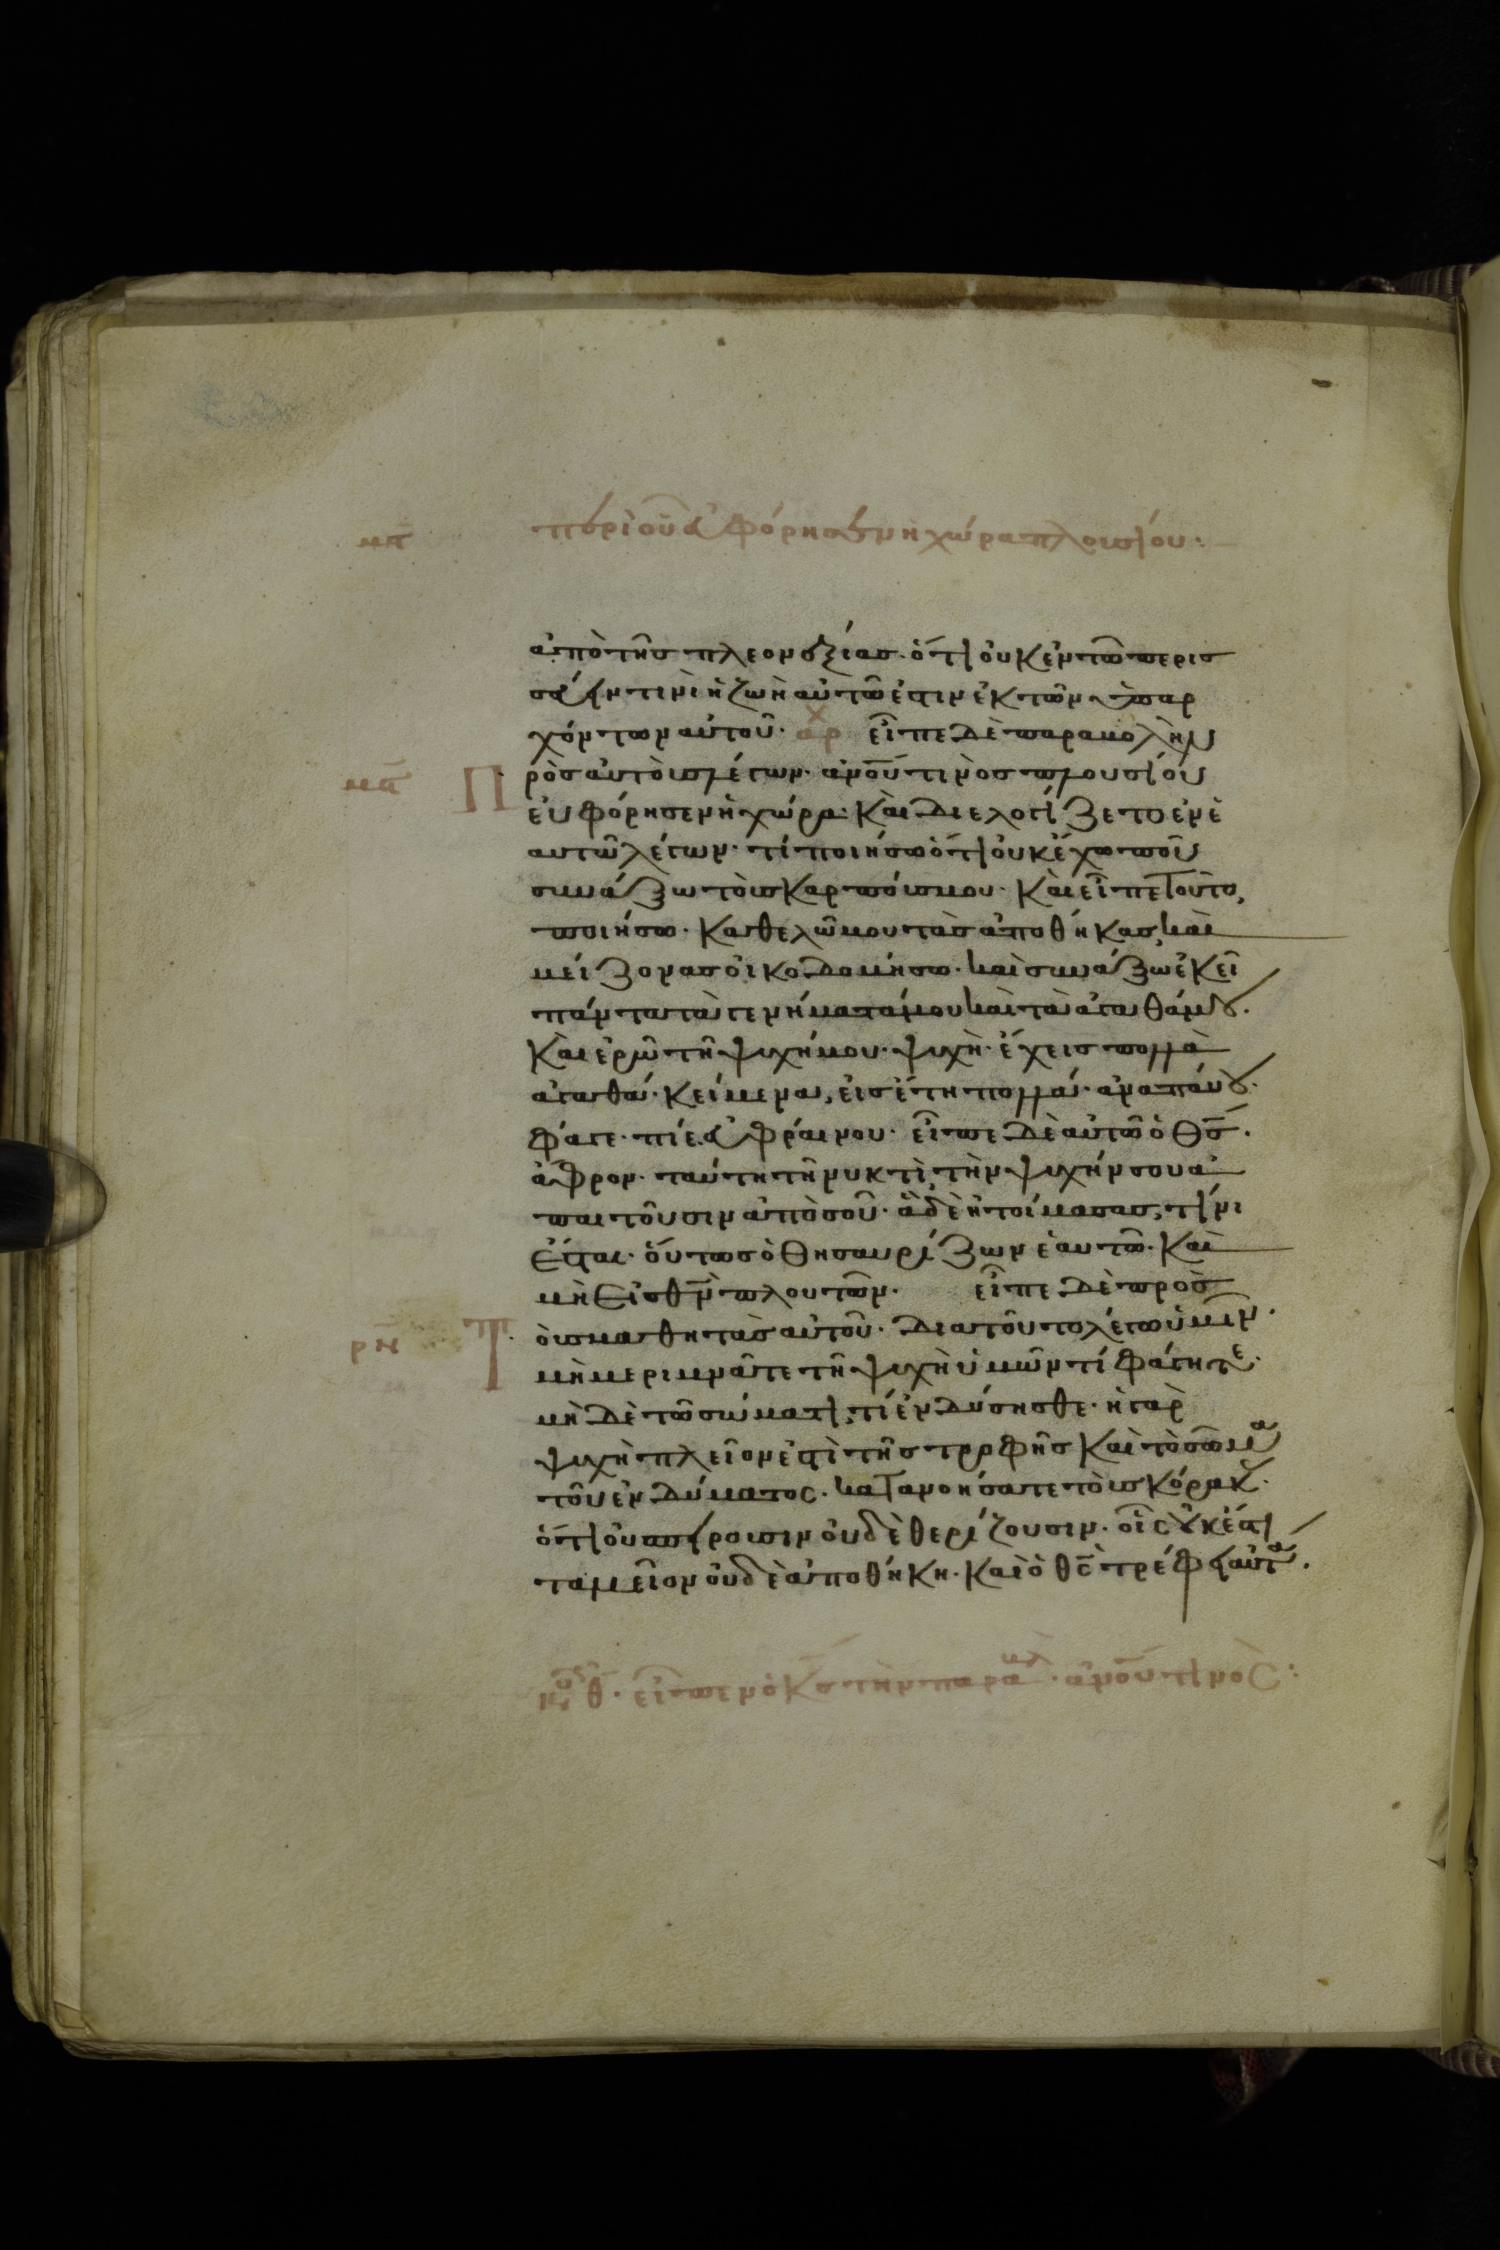 μς περὶ οὗ εὐφόρησεν ἡ χώρα πλουσίου:
ἀπὸ τῆς πλεονεξίας· ὅτι οὐκ ἐν τῶ περισ
σεύειν τινὶ ἡ ζωὴ αὐτῶ ἐστιν ἐκ τῶν ὑπαρ
χόντων αὐτοῦ· αρχ εἶπε δὲ παραβολὴν
μς Πρὸς αὐτοὺς λέγων· ἀνοῦ τινὸς πλουσίου
εὐφόρησεν ἡ χώρα· καὶ διελογίζετο ἐν ἑ
αυτῶ λέγων· τί ποιήσω ὅτι οὐκ ἔχω ποῦ
συνάξω τοὺς καρπούς μου· καὶ εἶπε τοῦτο
ποιήσω· καθελῶ μου τὰς ἀποθήκας, καὶ
μείζονας οἰκοδομήσω· καὶ συνάξω ἐκεῖ
πάντα τὰ γενήματά μου καὶ τὰ ἀγαθά μου·
καὶ ἐρῶ τῆ ψυχή μου· ψυχὴ· ἔχεις πολλὰ
ἀγαθά· κείμενα, εἰς ἔτη πολλά· ἀναπάυου·
φάγε· πίε εὐφραίνου· εἶπε δὲ αὐτῶ ὁ θς·
ἄφρον· ταύτη τῆ νυκτὶ, τὴν ψυχήν σου ἀ
παιτοῦσιν ἀπὸ σοῦ· ἃ δὲ ἡτοίμασας, τίνι
ἔσται· οὕτως ὁ θησαυρίζων ἑαυτῶ· καὶ
μὴ εἰς θν πλουτῶν· εἶπε δὲ πρὸς
ρν Τοὺς μαθητὰς αὐτοῦ· διὰ τοῦτο λέγω ὑμῖν·
μὴ μεριμνᾶτε τῆ ψυχῆ ὑμῶν τί φάγητε·
μὴ δὲ τῶ σώματι, τί ἐνδύσησθε· ἡ γὰρ
ψυχὴ πλεῖον ἐστὶ τῆς τροφῆς καὶ τὸ σῶμα
τοῦ ἐνδύματος· κατανοήσατε τοὺς κόρακας·
ὅτι οὐ σπείρουσιν οὐδὲ θερίζουσιν· οἷς οὐκ ἔστι
ταμεῖον οὐδὲ ἀποθήκη· καὶ ὁ θς τρέφει αὐτά·
θ· εἶπεν ὁ κς τὴν παραβολ· ἀνοῦ τινος: